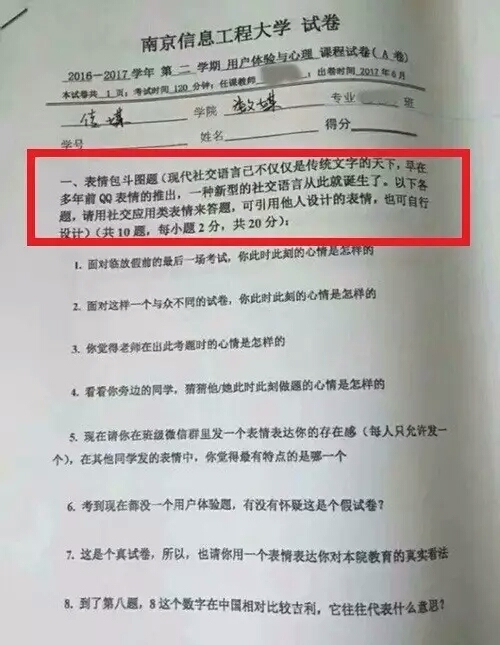 南京信息工程大学 试卷
2016—2017学年 第 二 学期 用户体验与心理 课程试卷(A卷)
本试卷共 1 页；考试时间 120 分钟；任课教师 ；出卷时间 2017年6月
学院 专业 班
学号 姓名 得分
一、表情包斗图题（现代社交语言已不仅仅是传统文字的天下，早在
多年前QQ表情的推出，一种新型的社交语言从此就诞生了。以下各
题，请用社交应用类表情来答题，可引用他人设计的表情，也可自行
设计）（共10题，每小题2分，共20分）：
1. 面对临放假前的最后一场考试，你此时此刻的心情是怎样的
2. 面对这样一个与众不同的试卷，你此时此刻的心情是怎样的
3. 你觉得老师在出此考题时的心情是怎样的
4. 看看你旁边的同学，猜猜他/她此时此刻做题的心情是怎样的
5. 现在请你在班级微信群里发一个表情表达你的存在感（每人只允许发一
个），在其他同学发的表情中，你觉得最有特点的是哪一个
6. 考到现在都没一个用户体验题，有没有怀疑这是个假试卷？
7. 这是个真试卷，所以，也请你用一个表情表达你对本院教育的真实看法
8. 到了第八题，8这个数字在中国相对比较吉利，它往往代表什么意思？